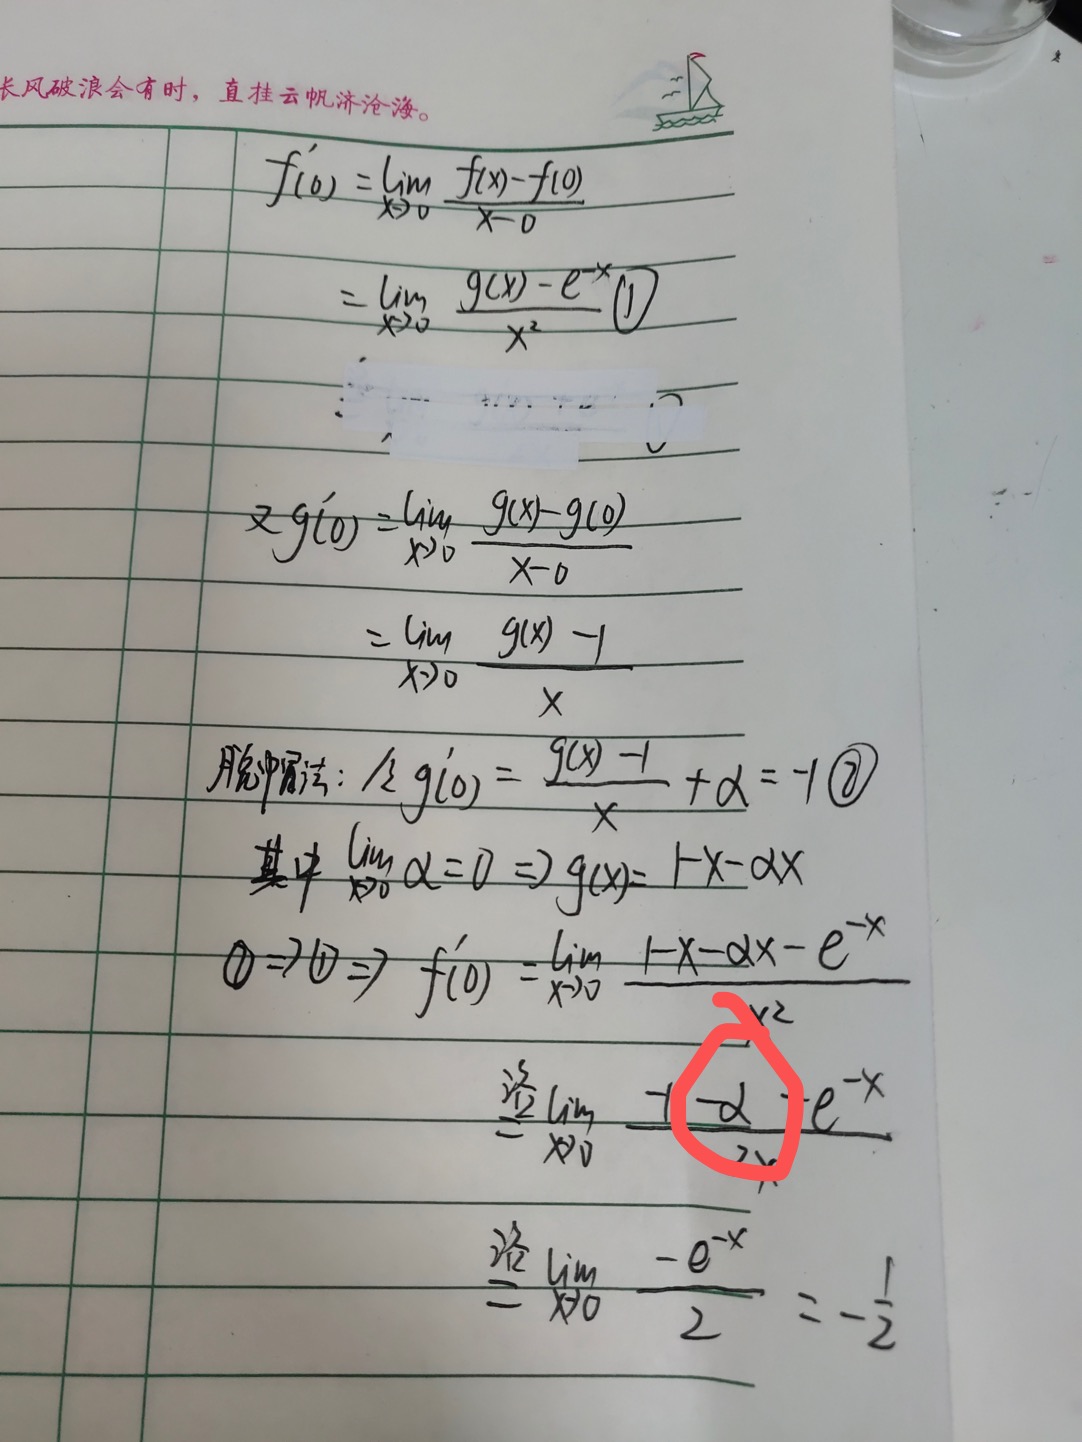 长风破浪会有时，直挂云帆济沧海。
f'(0) = lim x→0 f(x)-f(0) / x-0
= lim x→0 g(x)-e^-x / x² ①
又 g'(0) = lim x→0 g(x)-g(0) / x-0
= lim x→0 g(x)-1 / x
脱帽法: 令 g'(0) = g(x)-1 / x + α = -1 ②
其中 lim x→0 α = 0 ⇒ g(x) = 1-x-αx
② ⇒ ① ⇒ f'(0) = lim x→0 1-x-αx-e^-x / x²
洛 = lim x→0 -1 -α -e^-x / 2x
洛 = lim x→0 -e^-x / 2 = -1/2